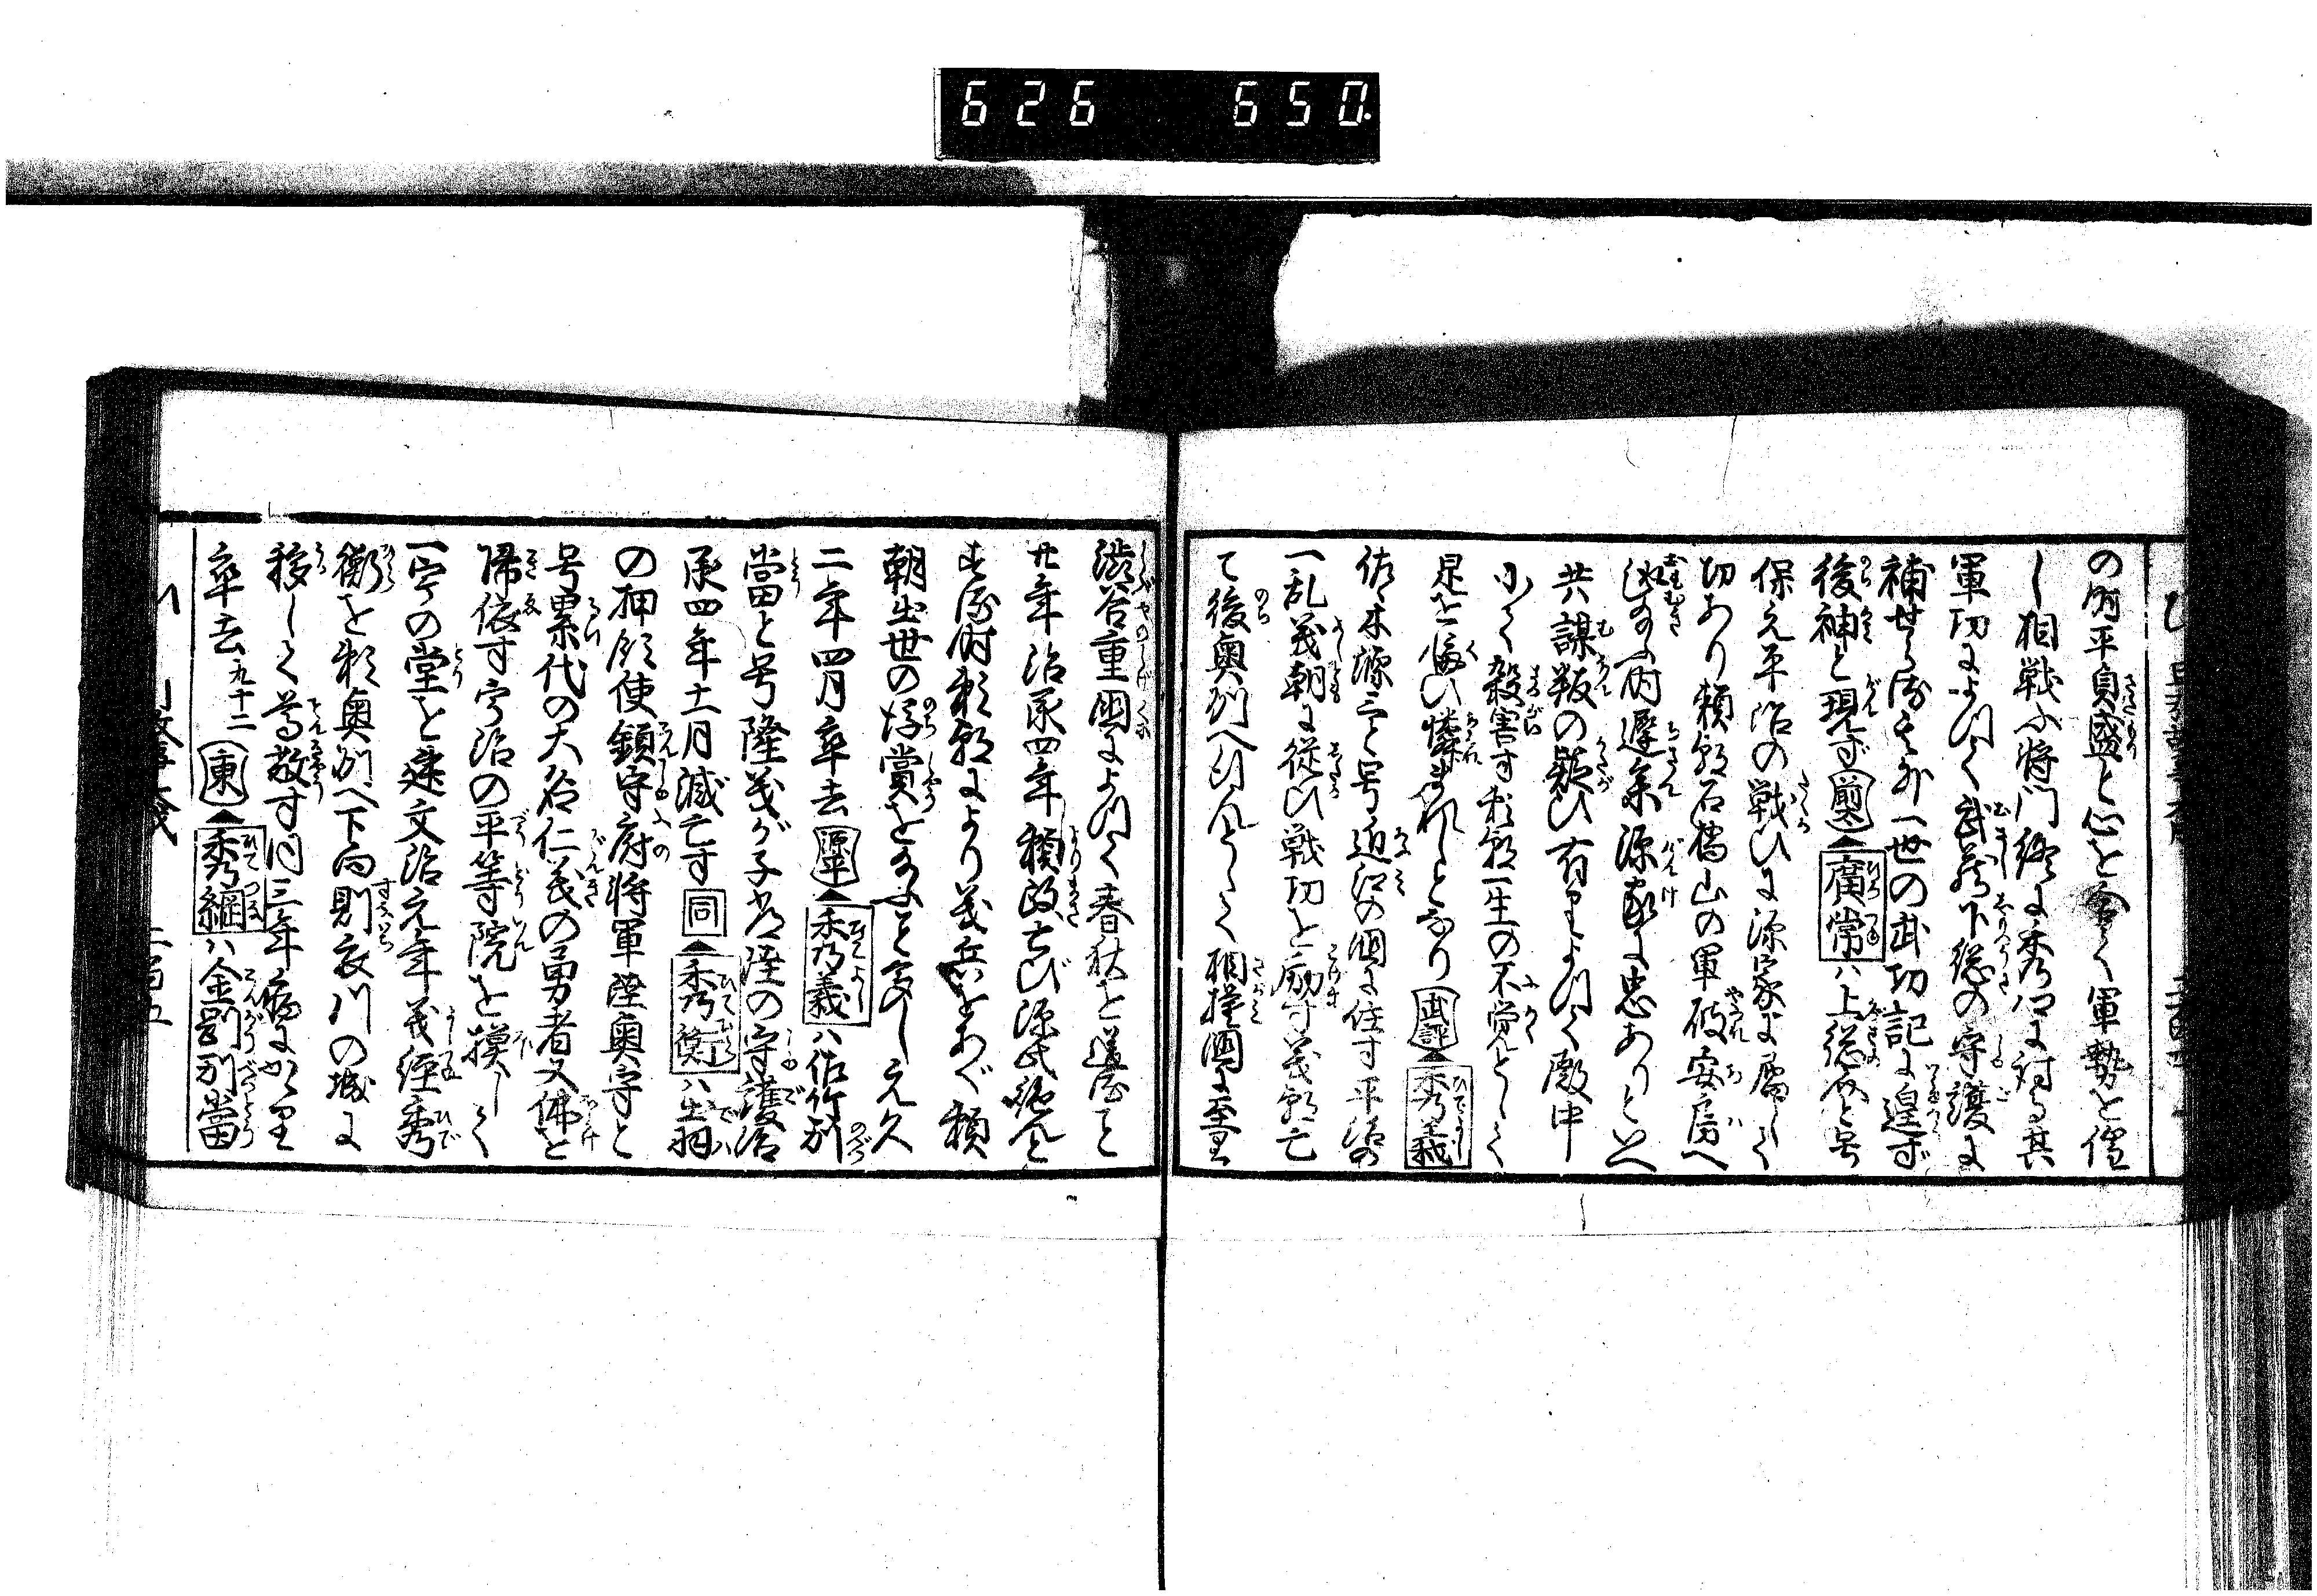 626 650
の時平貞盛と心を合て軍勢を催
し相戦ふ将門終に秀郷に討る其
軍功によつて武蔵下総の守護に
補せらる一世の武功記に遑ず
後神と現ず 廣常ハ上総介と号
保元平治の戦ひに源家に属して
切あり頼朝石橋山の軍破安房へ
趣の時遅参源家に忠ありといへ
共謀叛の疑ひ有によつて殿中
小て殺害す頼朝一生の不覚として
是を悔ひ憐まれしとなり 武評 秀義
佐々木源三と号近江の国に住す平治の
一乱義朝に従ひ戦功を励す義朝亡
て後奥州へ行んとして相摸国に至り
渋谷重国によつて春秋を送ること
廿年治承四年頼政亡び源氏絶んと
する時頼朝より義兵をあぐ頼
朝出世の後賞を多し元久
二年四月卒去 源平 秀義ハ佐竹別
當と号隆義が子常陸の守護治
承四年十一月滅亡す 同 秀衡ハ出羽
の押領使鎮守府将軍陸奥守と
号累代の大名仁義の勇者又佛を
帰依す宇治の平等院を摸して
一宇の堂を建文治元年義経秀
衡を頼奥州へ下向則衣川の城に
移して尊敬す同三年病によつて
卒去 九十二 東 秀綱ハ金剛別當